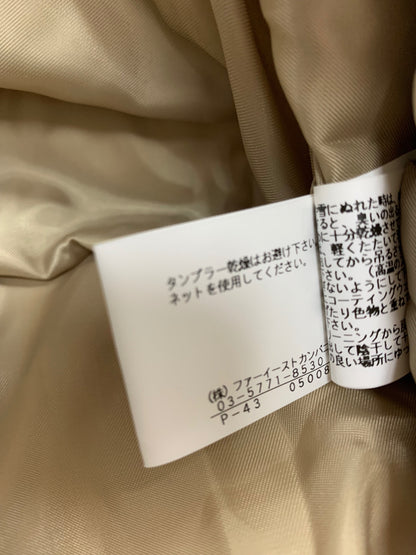 タンブラー乾燥はお避け下さ
ネットを使用してください。
(株)ファーイーストカンパニ
03-5771-8530
P-43 05008
雪にぬれた時は
ると、臭いの
に十分乾燥さ
軽くたたいて
てから吊るさ
さい。(高温の
ないようにして
コーティング
たり色物と重ね
ーニングから
して陰干して
良い場所にゆ